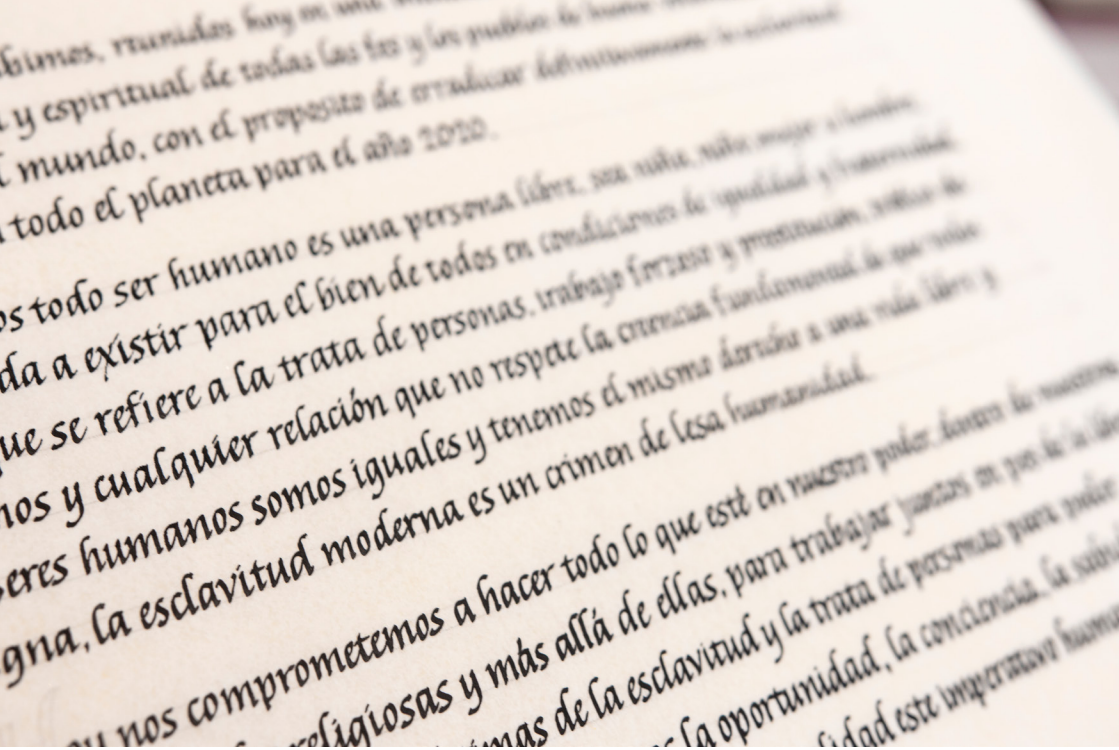 bimos, reunidos hoy en una
y espiritual de todas las fes y los pueblos de buena
mundo, con el proposito de erradicar definitivamente la esclavitud
todo el planeta para el año 2020.
os todo ser humano es una persona libre, sea niña, niño, mujer u hombre,
da a existir para el bien de todos en condiciones de igualdad y fraternidad.
que se refiere a la trata de personas, trabajo forzoso y prostitución, tráfico de
nos y cualquier relación que no respete la creencia fundamental de que todos
seres humanos somos iguales y tenemos el mismo derecho a una vida libre y
gna, la esclavitud moderna es un crimen de lesa humanidad.
oy nos comprometemos a hacer todo lo que esté en nuestro poder, dentro de nuestras
religiosas y más allá de ellas, para trabajar juntos en pos de la
imas de la esclavitud y la trata de personas para
s la oportunidad, la conciencia, la
lidad este imperativo